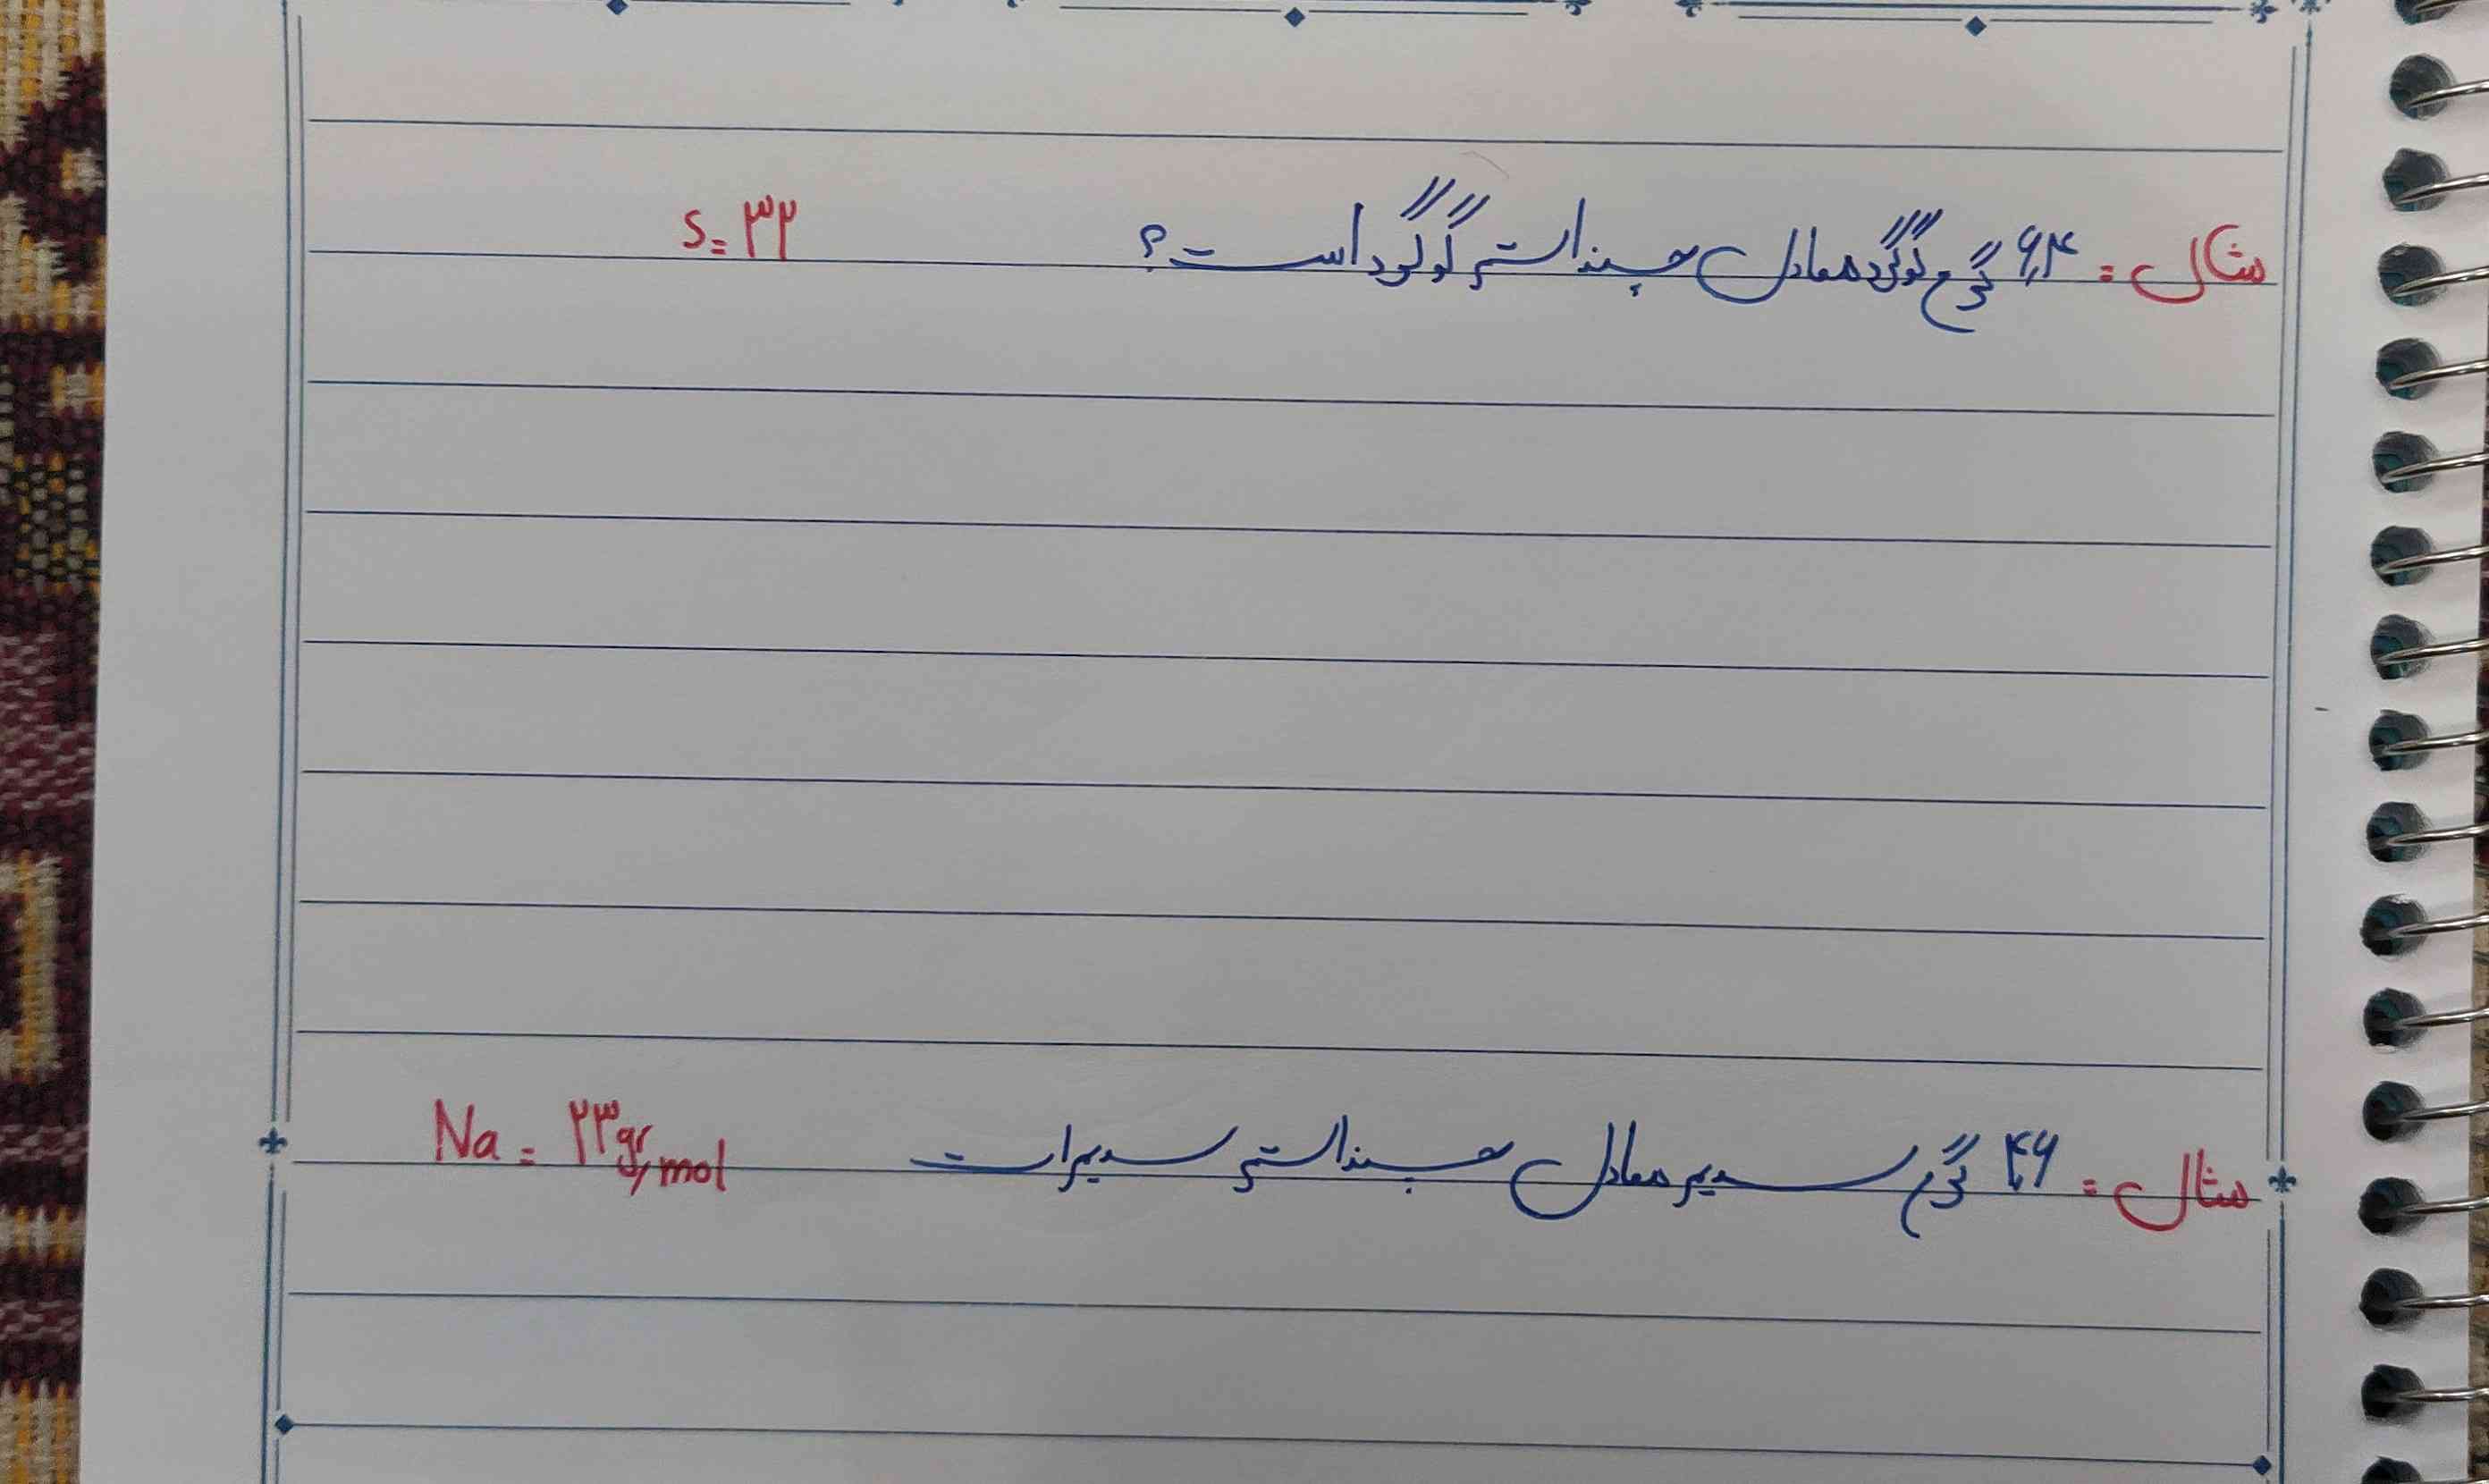 مثال = ۶٫۴ گرم گوگرد معادل چند اتم گوگرد است؟ S = ۳۲
مثال = ۴٫۶ گرم سدیم معادل چند اتم سدیم است Na = ۲۳ gr/mol